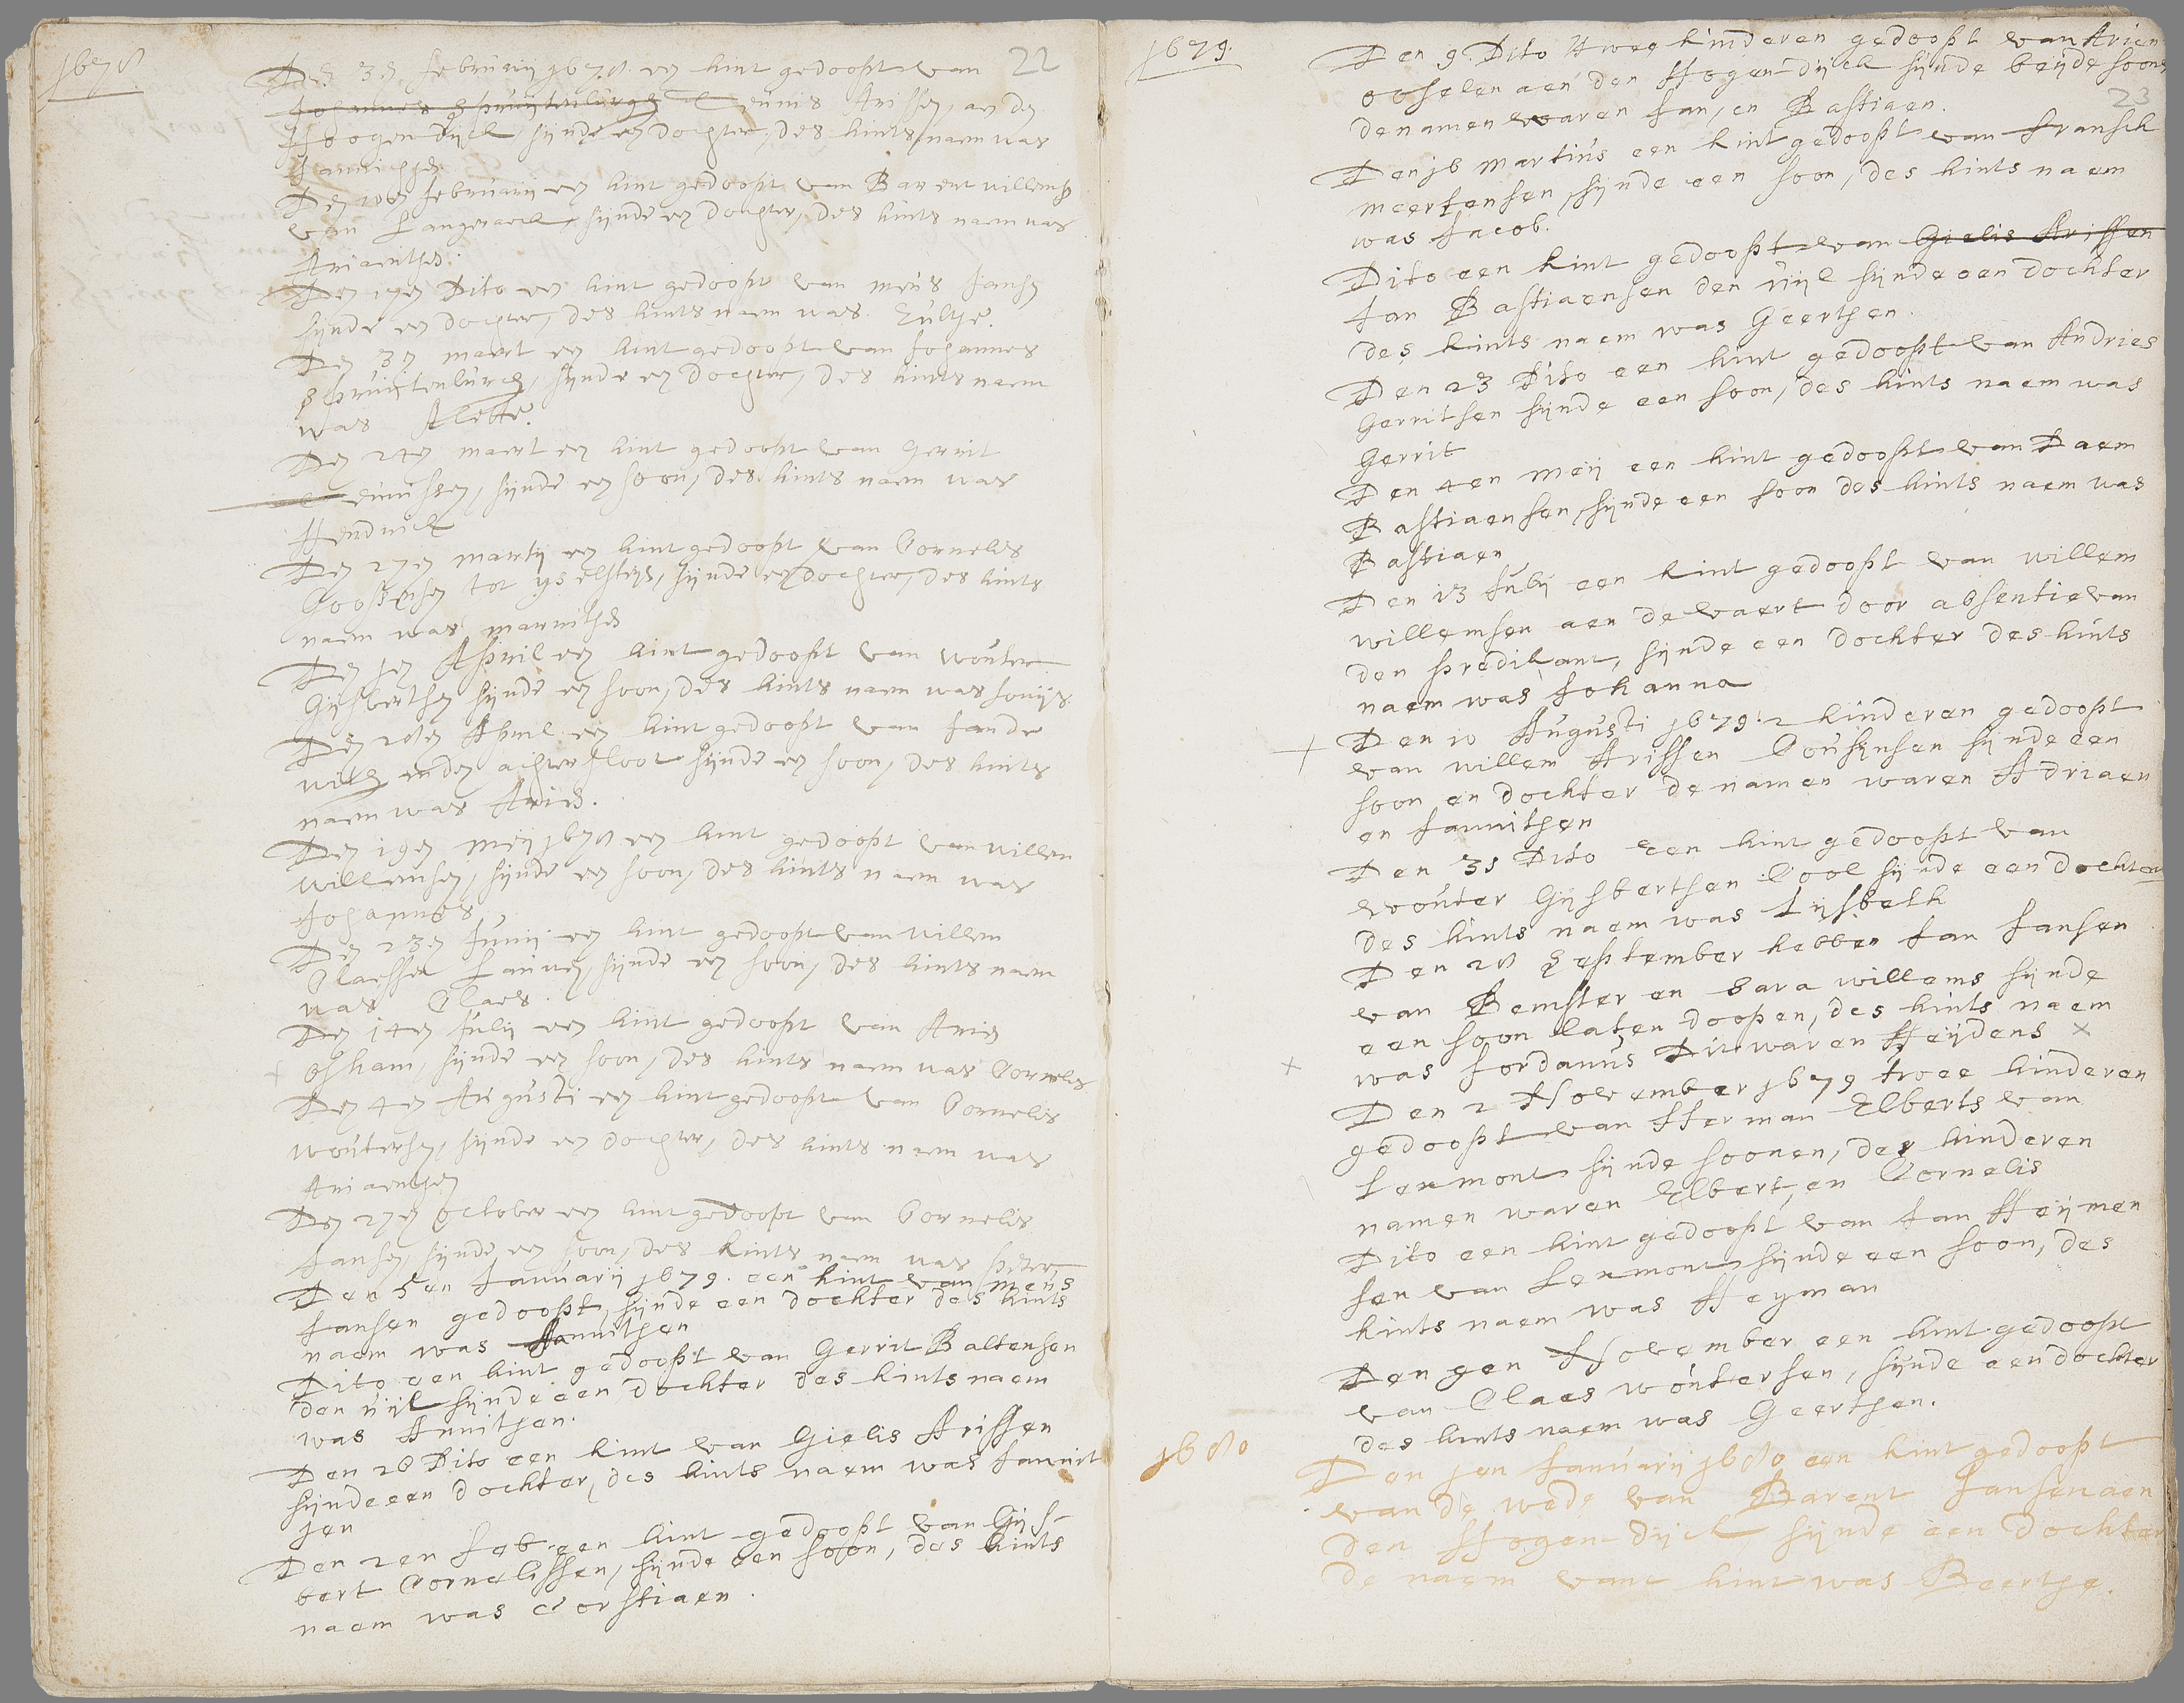 1678
22
Den 3en februarij 1678. een kint gedoopt van
Johannes Spruijtenburgh Teunis Arissen, aen den
Hoogendijck, sijnde een dochter, des kints naem was
Jannichgen
Den 10en februarij een kint gedoopt van Barent willemsz
van Langeraeck, sijnde een dochter, des kints naem was
Ariaentgen.
Den 17en Dito een kint gedoopt van meús Jansen
sijnde een dochter, des kints naem was
Den 3en maert een kint gedoopt van Johannes
Spruijtenburch, sijnde een dochter, des kints naem
was Aletta.
Den 24en maert een kint gedoopt van Gerrit
sijnde een soon, des kints naem was
Hendrick
Den 27en martij een kint gedoopt van Cornelis
Coopensen tot ijselsteijn, sijnde een dochter, des kints
naem was marrithen
Den 1en April een kint gedoopt van woúter
Gijsbertsen sijnde een soon, des kints naem was
Den 28en April een kint gedoopt van Jan de
with inden achtersloot sijnde een soon, des kints
naem was Arien.
Den 19en meij 1678 een kint gedoopt van willem
willemsen, sijnde een soon, des kints naem was
Johannes
Den 23en Junij een kint gedoopt van willem
Claessen sijnde een soon, des kints naem
was Claes.
Den 14en Julij een kint gedoopt van Arien
Osham, sijnde een soon, des kints naem was Cornelis
Den 4en Aúgústi een kint gedoopt van Cornelis
woútersen, sijnde een dochter, des kints naem was
Ariaentgen
Den 27en October een kint gedoopt van Cornelis
Jansen, sijnde een soon, des kints naem was pieter
Den 5en Januarij 1679. een kint van meús
Jansen gedoopt, sijnde een dochter des kints
naem was Annithen
Dito een kint gedoopt van Gerrit Baltensen
den uijl sijnde een dochter des kints naem
was Annithen.
Den 26 Dito een kint van Gielis Arissen
sijnde een dochter, des kints naem was Jannit
jen
Den 2en feb. een kint gedoopt van Gijs-
bert Cornelissen, sijnde een soon, des kints
naem was Corstiaen.
1679.
23
Den 9. Dito twee kinderen gedoopt van Arien
ooselen aen den Hogen-dijck sijnde beijde soons
de namen waren Jan, en Bastiaen.
Den 16 martiús een kint gedoopt van fransch
meertensen, sijnde een soon, des kints naem
was Jacob.
Dito een kint gedoopt van Gielis Arissen
Jan Bastiaensen den uijl sijnde een dochter
des kints naem was Geerthen.
Den 23 Dito een kint gedoopt van Andries
Gerritsen sijnde een soon, des kints naem was
Gerrit
Den 4en meij een kint gedoopt van Daem
Bastiaensen, sijnde een soon des kints naem was
Bastiaen
Den 13 Julij een kint gedoopt van willem
willemsen aen de vaert door absentie van
den predikant, sijnde een dochter des kints
naem was Johanna
Den 10 Augusti 1679. 2 kinderen gedoopt
van willem Arissen Coúsijnsen sijnde een
soon en dochter de namen waren Adriaen
en Jannithen
Den 31 Dito een kint gedoopt van
woúter Gijsbertsen Cool sijnde een dochter
des kints naem was Lijsbeth
Den 28 September hebben Jan Jansen
van Bemster en Sara willems sijnde
een soon laten doopen, des kints naem
was Jordanús Dit waren Heijdens
Den 2 November 1679 twee kinderen
gedoopt van Herman Elberts van
Leumont sijnde soonen, der kinderen
namen waren Elbert, en Cornelis
Dito een kint gedoopt van Jan Heijmen
sen van Leumont sijnde een soon, des
kints naem was Heyman
Den 9en November een kint gedoopt
van Claes woútersen, sijnde een dochter
des kints naem was Geerthen.
1680
Den 1en Januarij 1680 een kint gedoopt
van de wede van Barent Jansen aen
den Hogen dijck sijnde een dochter
de naem vant kint was Beertje.